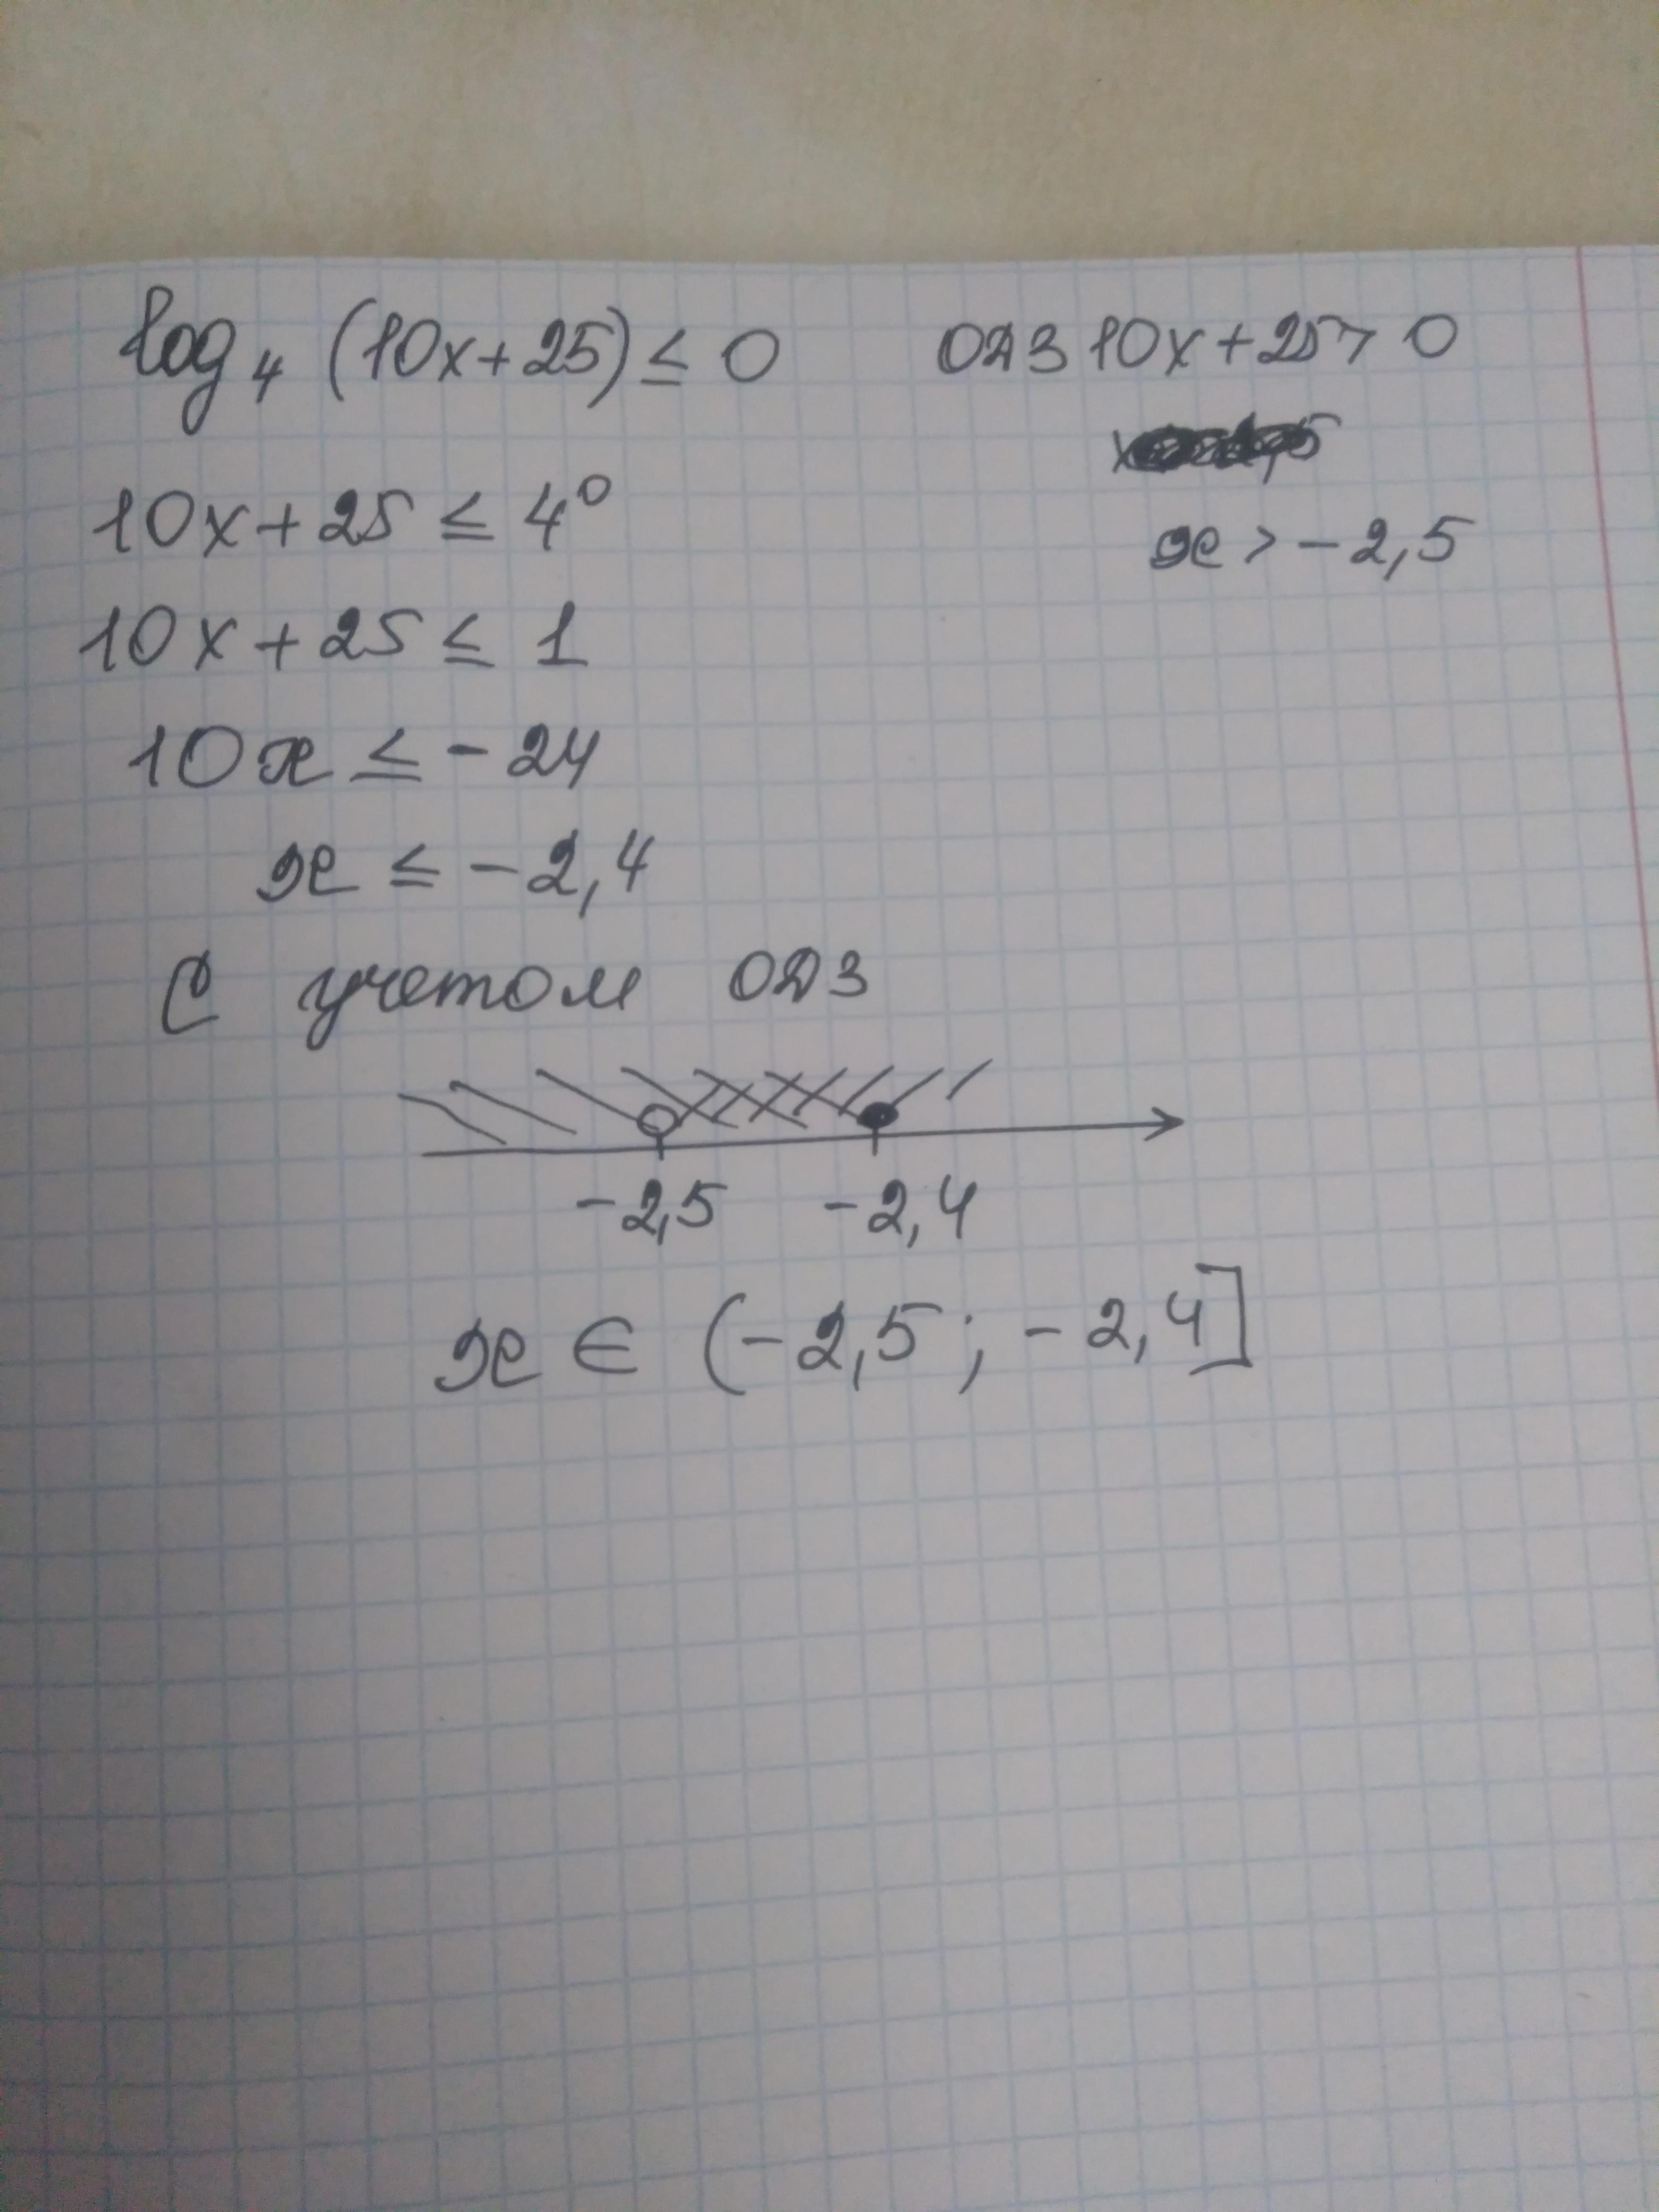 log₄ (10x+25) ≤ 0
ОДЗ 10x+25 > 0
x > -2,5
10x+25 ≤ 4⁰
10x+25 ≤ 1
10x ≤ -24
x ≤ -2,4
С учетом ОДЗ
-2,5 -2,4
x ∈ (-2,5; -2,4]